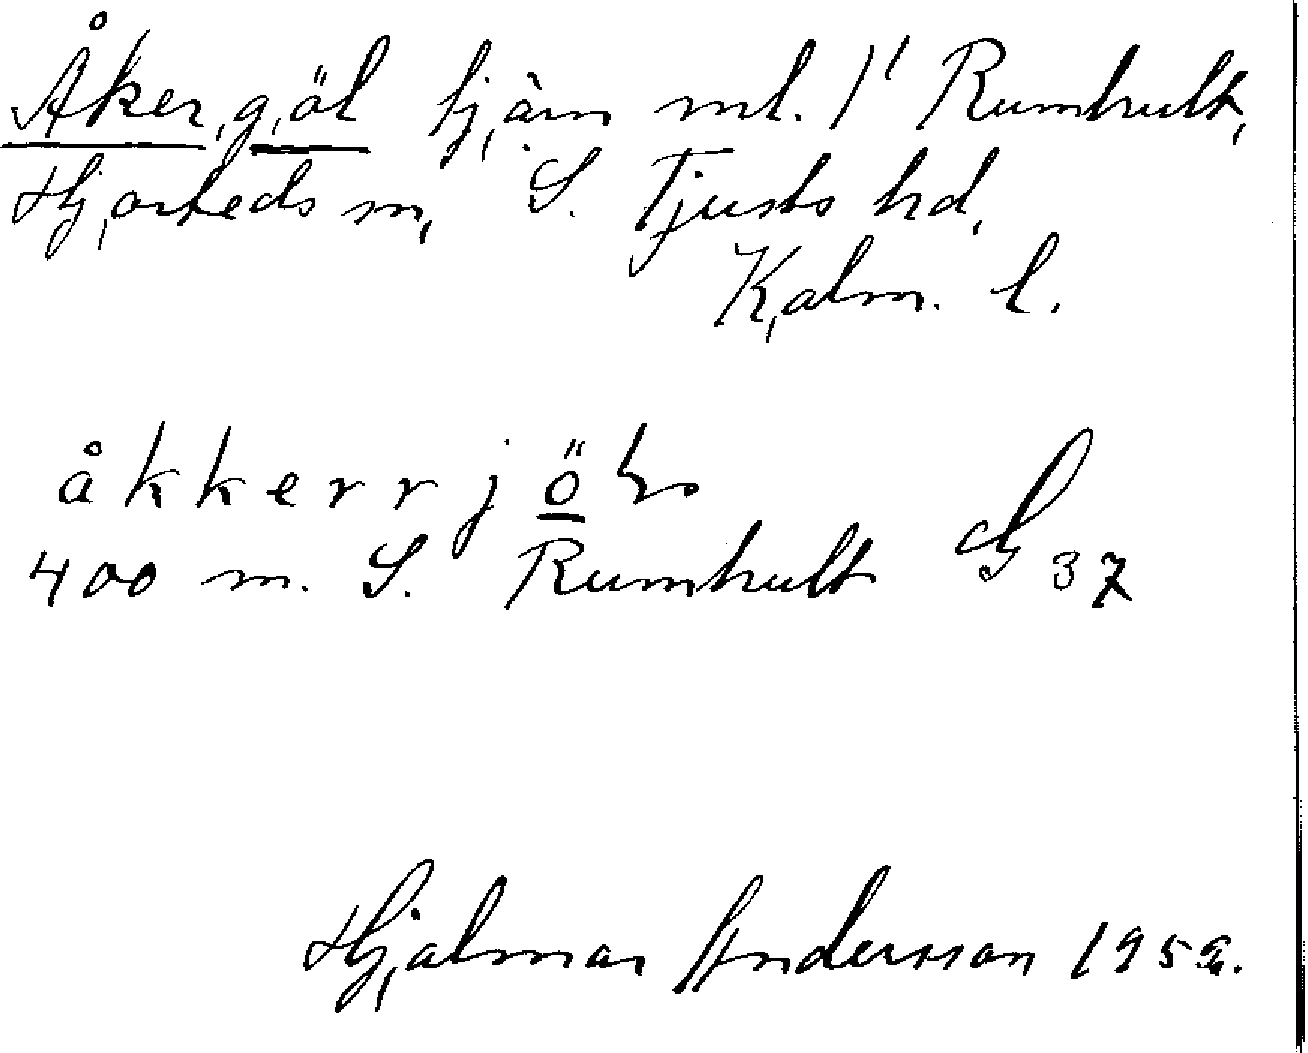 Åkergöl tjärn ml. 1' Rumhult,
Hjorteds sn, S. Tjusts hd,
Kalm. l.
åkkerrjöl
400 m. S. Rumhult G 37
Hjalmar Andersson 1952.